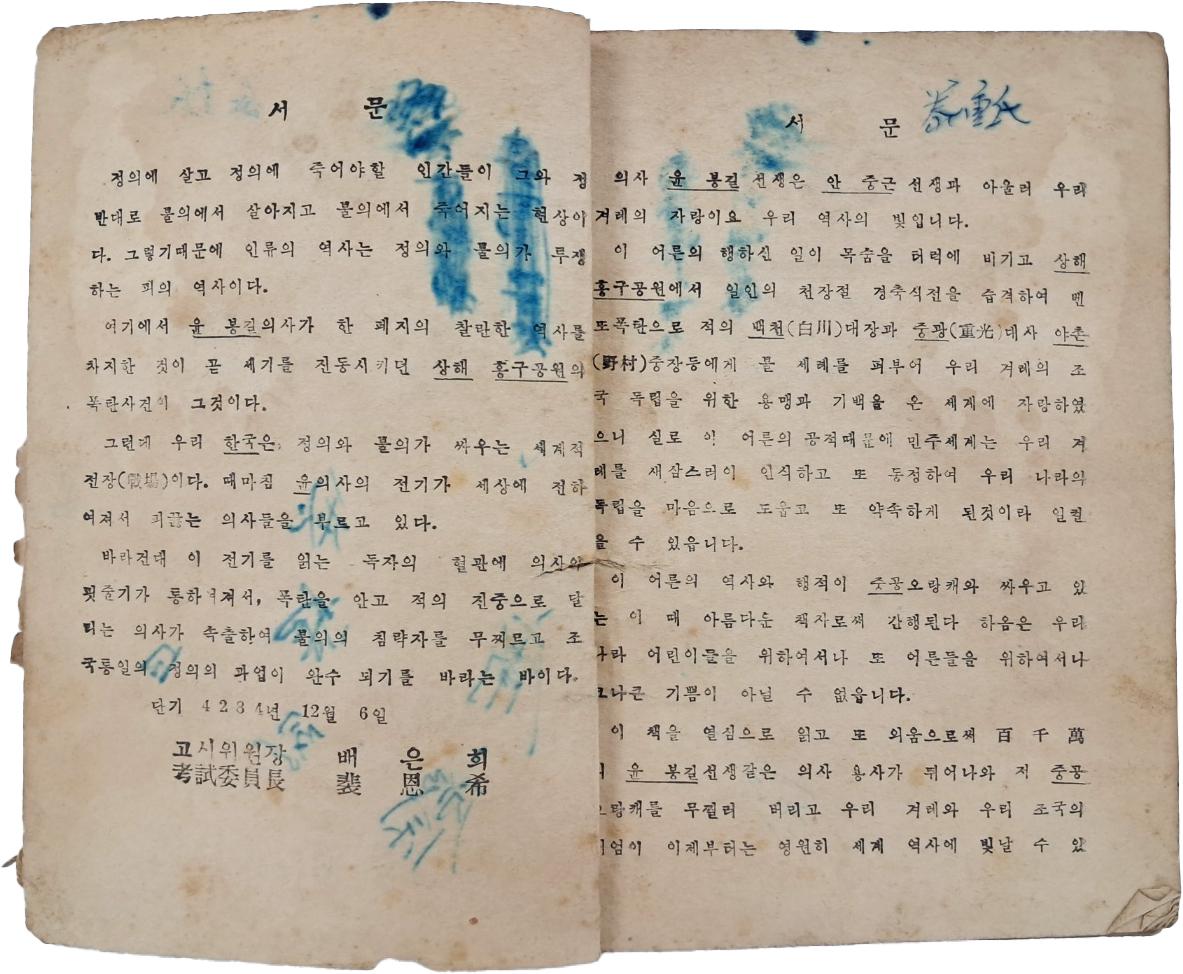 서 문
정의에 살고 정의에 죽어야할 인간들이 그와 정
반대로 불의에서 살아지고 불의에서 죽어지는 현상이
다. 그렇기때문에 인류의 역사는 정의와 불의가 투쟁
하는 피의 역사이다.
여기에서 윤 봉길의사가 한 페지의 찰란한 역사를
차지한 것이 곧 세기를 진동시키던 상해 홍구공원의
폭탄사건이 그것이다.
그런데 우리 한국은 정의와 불의가 싸우는 세계적
전장(戰場)이다. 때마침 윤의사의 전기가 세상에 전하
여져서 피끓는 의사들을 부르고 있다.
바라건대 이 전기를 읽는 독자의 혈관에 의사의
핏줄기가 통하여져서, 폭탄을 안고 적의 진중으로 달
리는 의사가 속출하여 불의의 침략자를 무찌르고 조
국통일의 정의의 과업이 완수 되기를 바라는 바이다.
단기 4284년 12월 6일
고시위원장 배 은 희
考試委員長 裵 恩 希
서 문
의사 윤 봉길 선생은 안 중근 선생과 아울러 우리
겨레의 자랑이요 우리 역사의 빛입니다.
이 어른의 행하신 일이 목숨을 터럭에 비기고 상해
홍구공원에서 일인의 천장절 경축식전을 습격하여 땐
또폭탄으로 적의 백천(白川)대장과 중광(重光)대사 야촌
(野村)중장등에게 불 세례를 퍼부어 우리 겨레의 조
국 독립을 위한 용맹과 기백을 온 세계에 자랑하였
으니 실로 이 어른의 공적때문에 민주세계는 우리 겨
레를 새삼스러이 인식하고 또 동정하여 우리 나라의
독립을 마음으로 도웁고 또 약속하게 된것이라 일컬
을 수 있읍니다.
이 어른의 역사와 행적이 중공오랑캐와 싸우고 있
는 이 때 아름다운 책자로써 간행된다 하옴은 우리
나라 어린이들을 위하여서나 또 어른들을 위하여서나
크나큰 기쁨이 아닐 수 없읍니다.
이 책을 열심으로 읽고 또 외움으로써 百 千 萬
의 윤 봉길선생같은 의사 용사가 뛰어나와 저 중공
오랑캐를 무찔러 버리고 우리 겨레와 우리 조국의
위엄이 이제부터는 영원히 세계 역사에 빛날 수 있